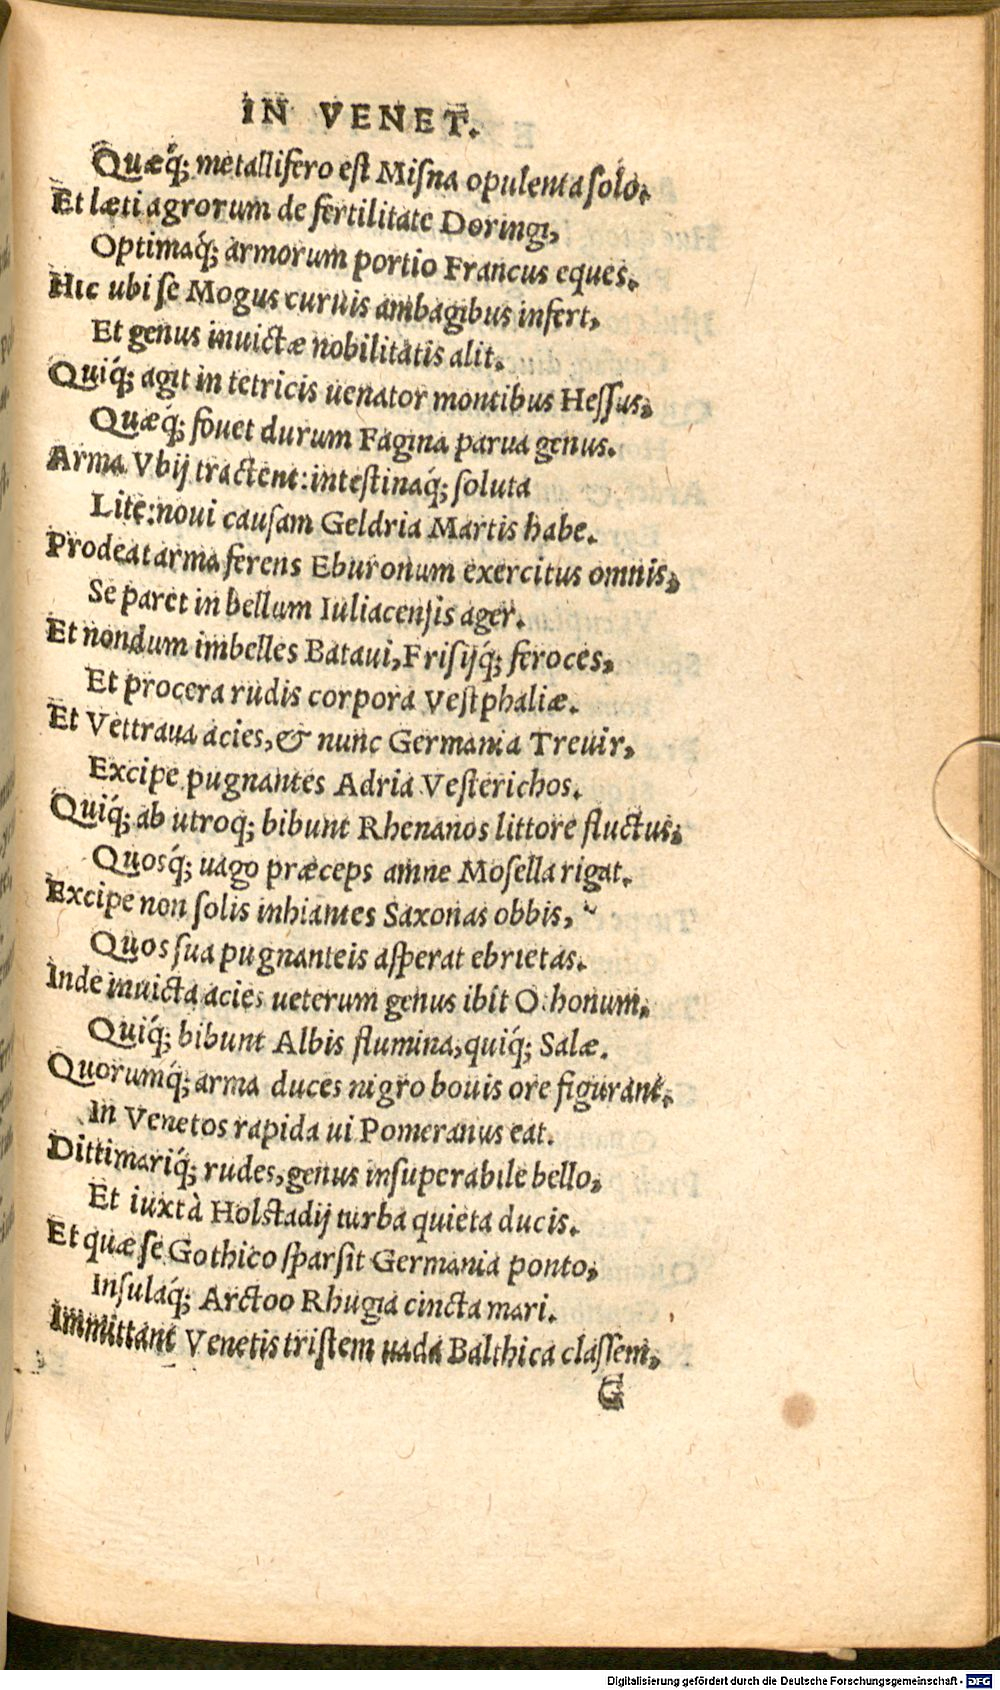 IN VENET.
Quæq́; metallifero est Misna opulenta solo.
Et læti agrorum de fertilitate Doringi,
Optimaq́; armorum portio Francus eques.
Hic ubi se Mogus curuis ambagibus infert,
Et genus inuictæ nobilitatis alit.
Quiq́; agit in tetricis uenator montibus Hessus,
Quæq́; fouet durum Fagina parua genus.
Arma Vbij tractent: intestinaq́; soluta
Lite: noui causam Geldria Martis habe.
Prodeat arma ferens Eburonum exercitus omnis,
Se paret in bellum Iuliacensis ager.
Et nondum imbelles Bataui, Frisijq́; feroces,
Et procera rudis corpora Vestphaliæ.
Et Vettraua acies, & nunc Germania Treuir,
Excipe pugnantes Adria Vesterichos.
Quiq́; ab utroq; bibunt Rhenanos littore fluctus:
Quosq́; uago præceps amne Mosella rigat.
Excipe non solis inhiantes Saxonas obbis,
Quos sua pugnanteis asperat ebrietas.
Inde inuicta acies ueterum genus ibit Othonum,
Quiq́; bibunt Albis flumina, quiq́; Salæ.
Quorumq́; arma duces nigro bouis ore figurant,
In Venetos rapida ui Pomeranus eat.
Dittimariq́; rudes, genus insuperabile bello,
Et iuxtà Holstadij turba quieta ducis.
Et quæ se Gothico sparsit Germania ponto,
Insulaq́; Arctoo Rhugia cincta mari.
Immittant Venetis tristem uada Balthica classem,
C
Digitalisierung gefördert durch die Deutsche Forschungsgemeinschaft - DFG